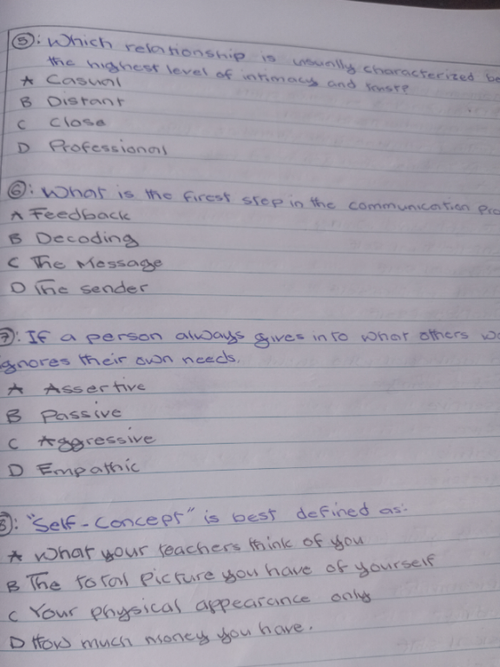 ⑤: Which relationship is usually characterized
the highest level of intimacy and trust?
A Casual
B Distant
C Close
D Professional
⑥: What is the firest step in the communication
A Feedback
B Decoding
C The Message
D The sender
⑦: If a person always gives into what others
ignores their own needs.
A Assertive
B Passive
C Aggressive
D Empathic
⑧: "Self-Concept" is best defined as:
A What your teachers think of you
B The total picture you have of yourself
C Your physical appearance only
D How much money you have.